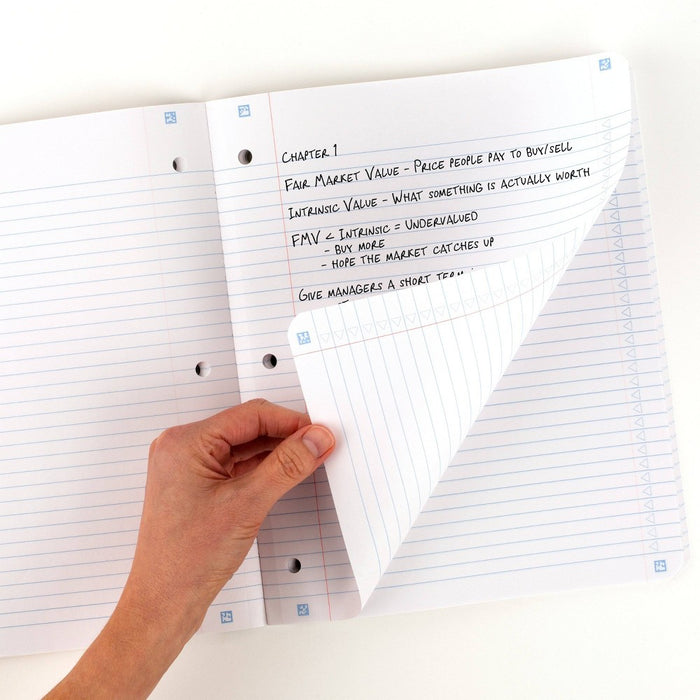 CHAPTER 1
FAIR MARKET VALUE - PRICE PEOPLE PAY TO BUY/SELL
INTRINSIC VALUE - WHAT SOMETHING IS ACTUALLY WORTH
FMV < INTRINSIC = UNDERVALUED
- BUY MORE
- HOPE THE MARKET CATCHES UP
GIVE MANAGERS A SHORT TERM